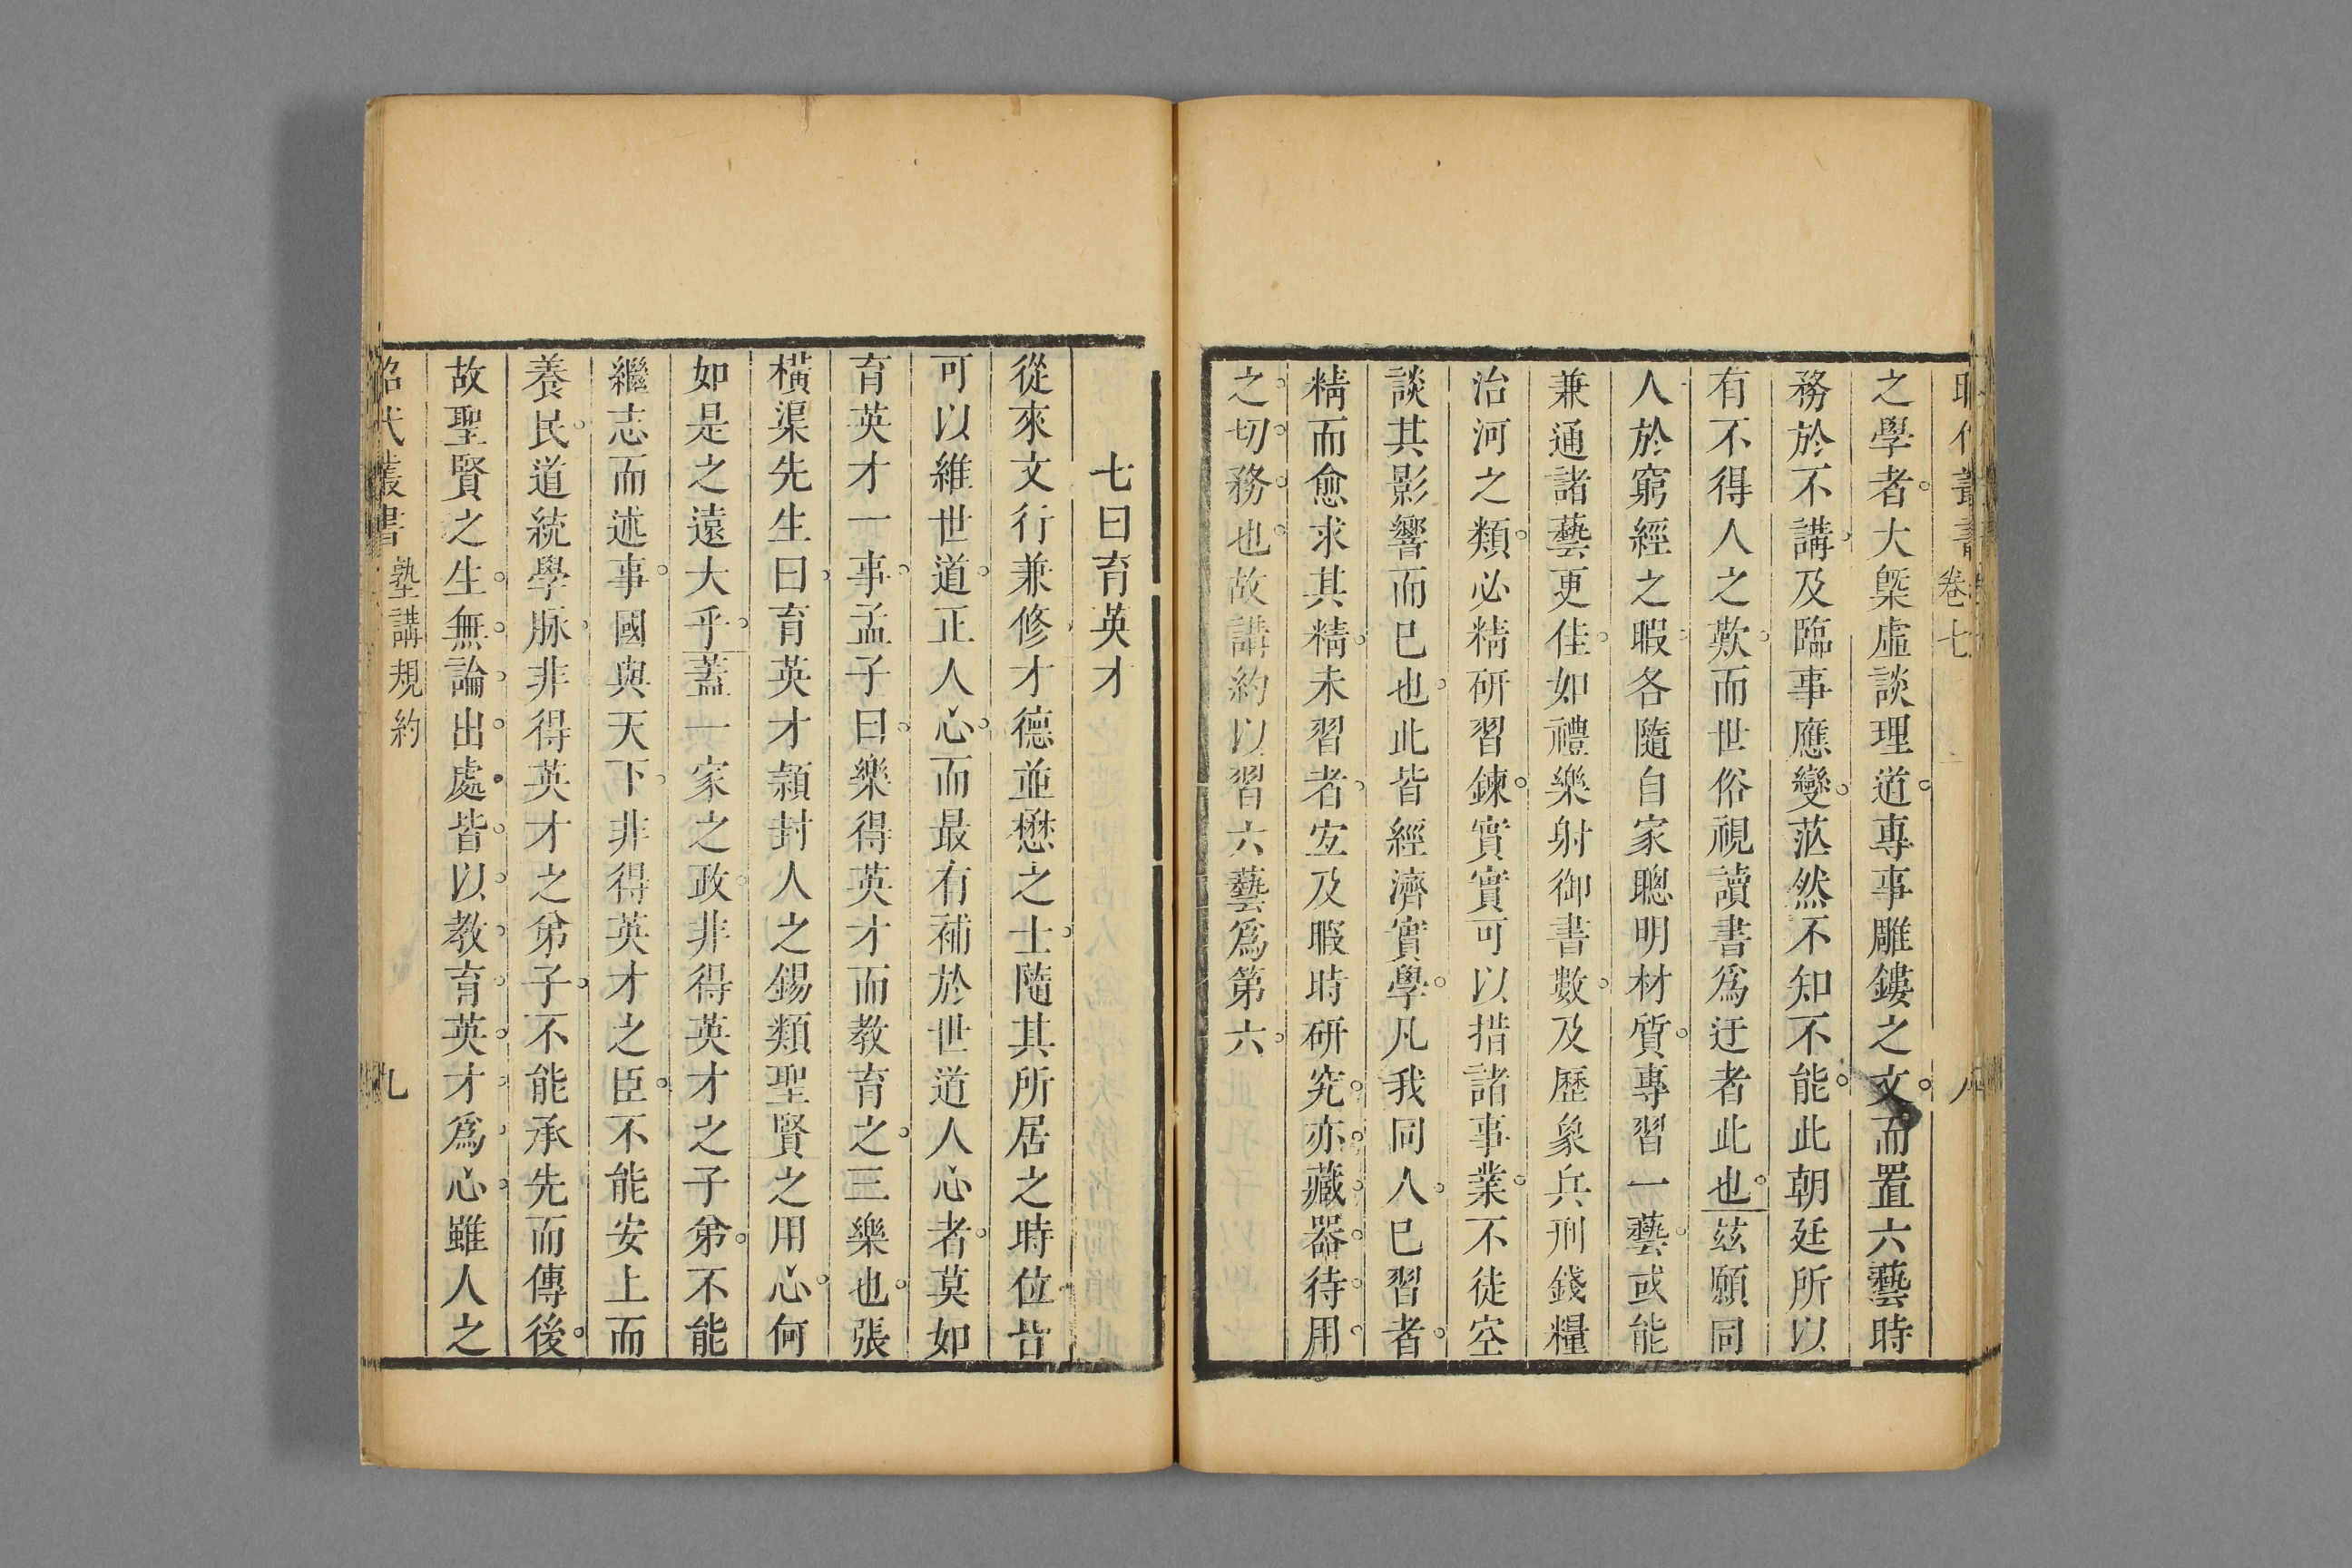 昭代叢書 卷七 八
之學者大槩虛談理道專事雕鏤之文而置六藝時
務於不講及臨事應變茫然不知不能此朝廷所以
有不得人之歎而世俗視讀書爲迂者此也玆願同
人於窮經之暇各隨自家聰明材質專習一藝或能
兼通諸藝更佳如禮樂射御書數及歷象兵刑錢糧
治河之類必精研習鍊實實可以措諸事業不徒空
談其影響而已也此皆經濟實學凡我同人已習者
精而愈求其精未習者宐及暇時研究亦藏器待用
之切務也故講約以習六藝爲第六
七曰育英才
從來文行兼修才德並懋之士隨其所居之時位皆
可以維世道正人心而最有補於世道人心者莫如
育英才一事孟子曰樂得英才而教育之三樂也張
橫渠先生曰育英才潁封人之錫類聖賢之用心何
如是之遠大乎蓋一家之政非得英才之子弟不能
繼志而述事國與天下非得英才之臣不能安上而
養民道統學脈非得英才之弟子不能承先而傳後
故聖賢之生無論出處皆以教育英才爲心雖人之
昭代叢書 塾講規約 九